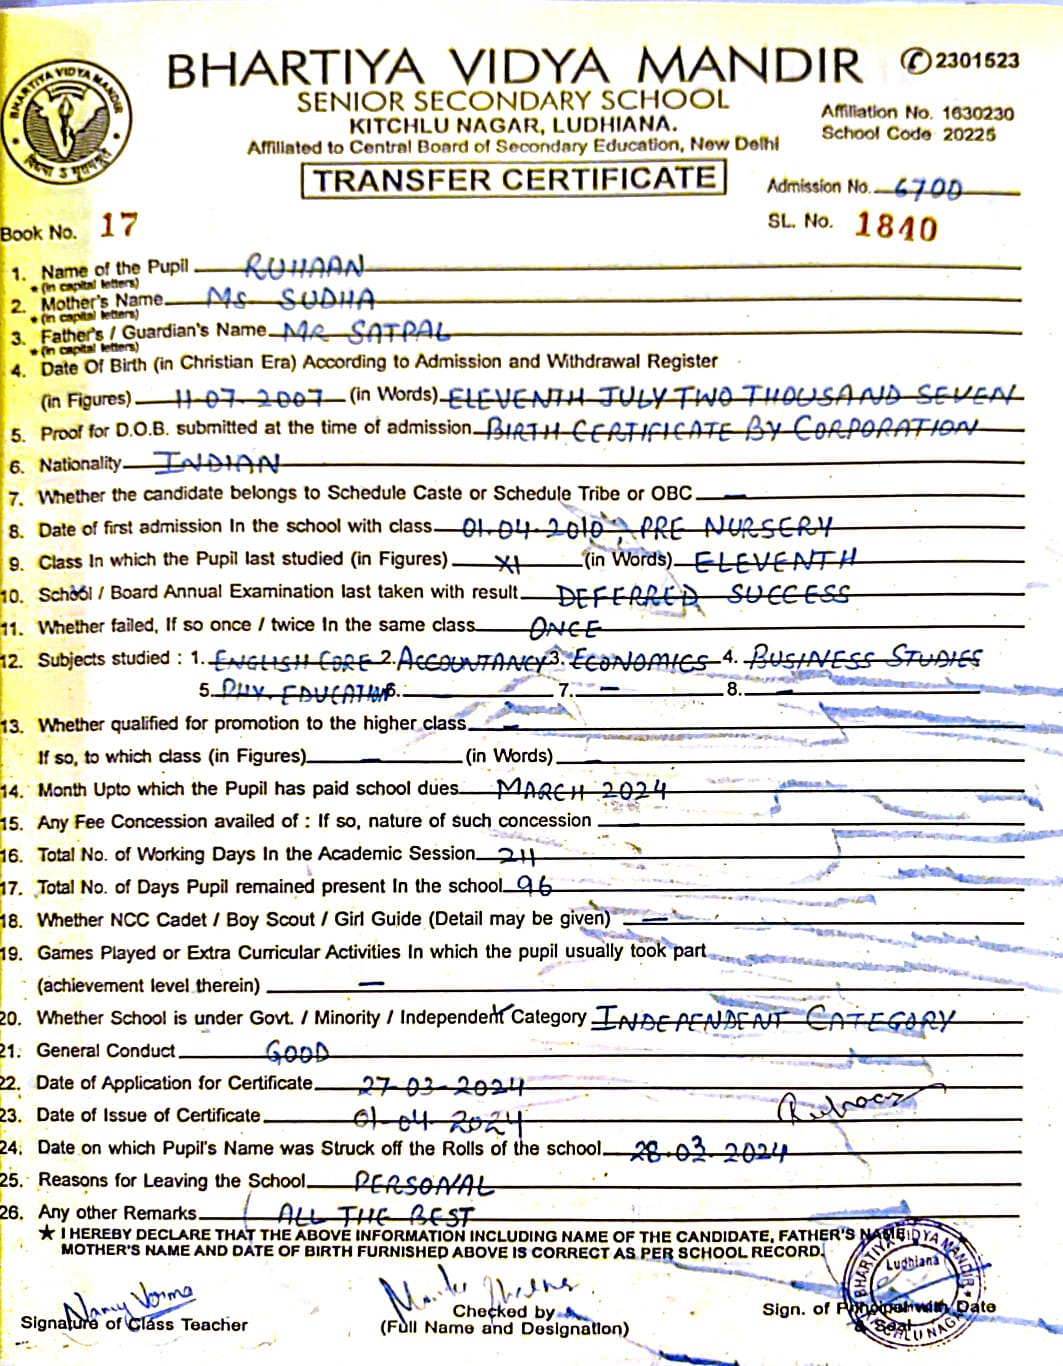 BHARTIYA VIDYA MANDIR
BHARTIYA VIDYA MANDIR ✆2301523
SENIOR SECONDARY SCHOOL
KITCHLU NAGAR, LUDHIANA.
Affiliated to Central Board of Secondary Education, New Delhi
Affiliation No. 1630230
School Code 20225
TRANSFER CERTIFICATE
Admission No. 6700
Book No. 17
SL. No. 1840
1. Name of the Pupil RUHAAN
* (in capital letters)
2. Mother's Name MS SUDHA
* (in capital letters)
3. Father's / Guardian's Name MR SATPAL
* (in capital letters)
4. Date Of Birth (in Christian Era) According to Admission and Withdrawal Register
(in Figures) 11-07-2007 (in Words) ELEVENTH JULY TWO THOUSAND SEVEN
5. Proof for D.O.B. submitted at the time of admission BIRTH CERTIFICATE BY CORPORATION
6. Nationality INDIAN
7. Whether the candidate belongs to Schedule Caste or Schedule Tribe or OBC —
8. Date of first admission In the school with class 01.04.2010, PRE NURSERY
9. Class In which the Pupil last studied (in Figures) XI (in Words) ELEVENTH
10. School / Board Annual Examination last taken with result DEFERRED SUCCESS
11. Whether failed, If so once / twice In the same class ONCE
12. Subjects studied : 1. ENGLISH CORE 2. ACCOUNTANCY 3. ECONOMICS 4. BUSINESS STUDIES
5. PHY. EDUCATION 6. 7. — 8. —
13. Whether qualified for promotion to the higher class —
If so, to which class (in Figures) — (in Words) —
14. Month Upto which the Pupil has paid school dues MARCH 2024
15. Any Fee Concession availed of : If so, nature of such concession
16. Total No. of Working Days In the Academic Session 211
17. Total No. of Days Pupil remained present In the school 96
18. Whether NCC Cadet / Boy Scout / Girl Guide (Detail may be given) —
19. Games Played or Extra Curricular Activities In which the pupil usually took part
(achievement level therein) —
20. Whether School is under Govt. / Minority / Independent Category INDEPENDENT CATEGORY
21. General Conduct GOOD
22. Date of Application for Certificate 27-03-2024
23. Date of Issue of Certificate 01-04-2024
24. Date on which Pupil's Name was Struck off the Rolls of the school 28.03.2024
25. Reasons for Leaving the School PERSONAL
26. Any other Remarks ALL THE BEST
★ I HEREBY DECLARE THAT THE ABOVE INFORMATION INCLUDING NAME OF THE CANDIDATE, FATHER'S NAME,
MOTHER'S NAME AND DATE OF BIRTH FURNISHED ABOVE IS CORRECT AS PER SCHOOL RECORD.
BHARTIYA VIDYA MANDIR
Ludhiana
KITCHLU NAGAR
Nancy Verma
Signature of Class Teacher
Checked by
(Full Name and Designation)
Sign. of Principal with Date
& Seal